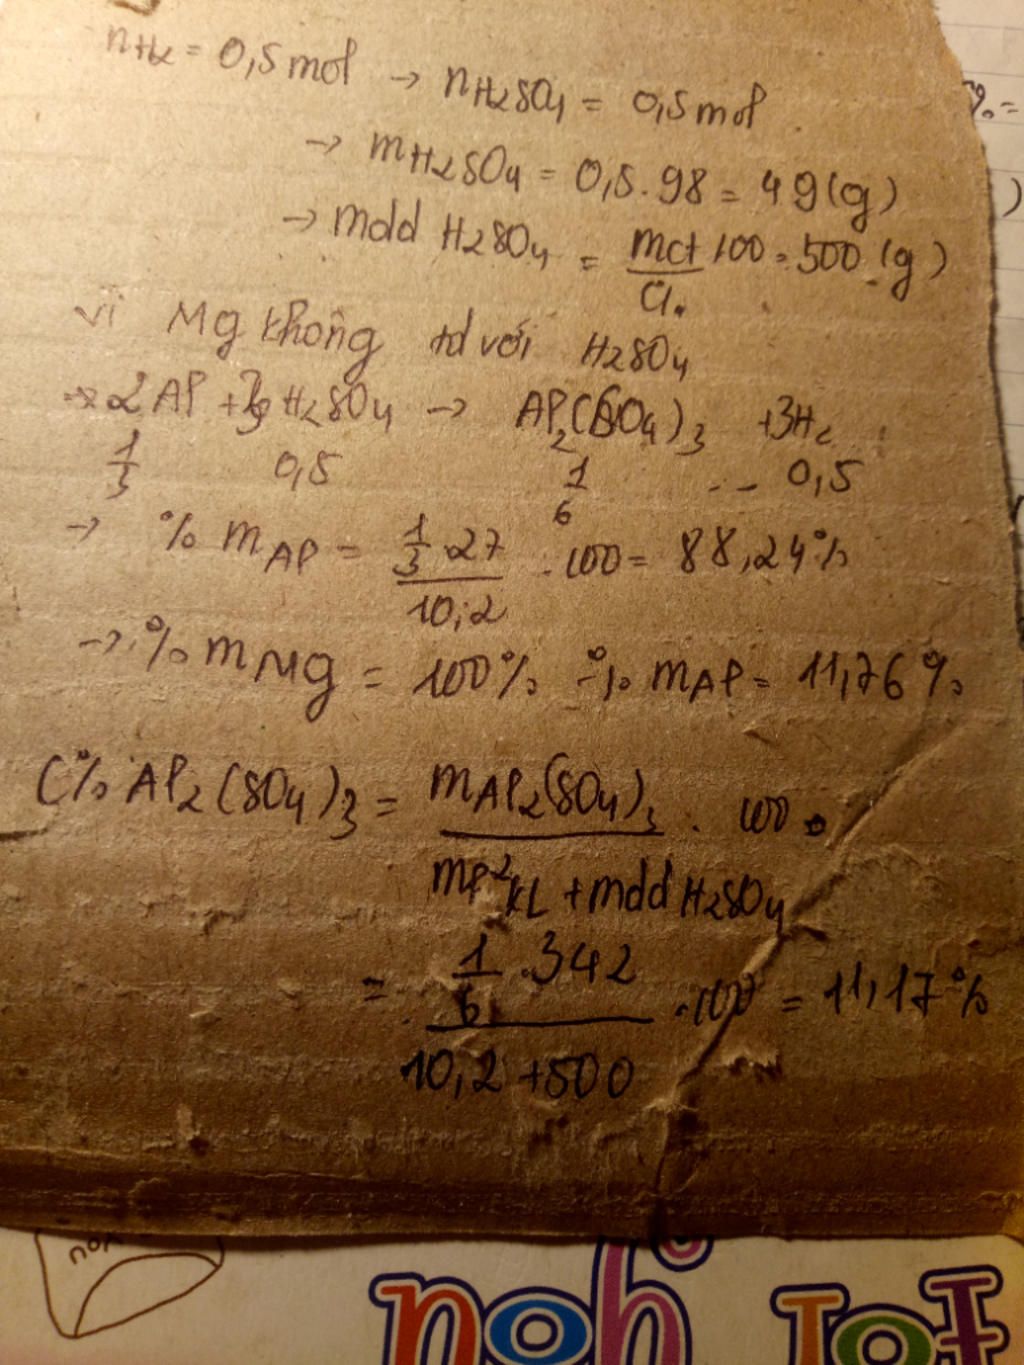 nH2 = 0,5 mol → nH2SO4 = 0,5 mol
→ mH2SO4 = 0,5.98 = 49 (g)
→ mdd H2SO4 = mct/C%.100 = 500 (g)
Vì Mg không td với H2SO4
→ 2Al + 3H2SO4 → Al2(SO4)3 + 3H2
1/3 0,5 1/6 0,5
→ % mAl = (1/3.27)/10,2 .100 = 88,24%
→ % mMg = 100% - % mAl = 11,76%
C% Al2(SO4)3 = mAl2(SO4)3 . 100
KL + mdd H2SO4
= (1/6.342)/(10,2+500) .100 = 11,17%
%=
)
hoπ